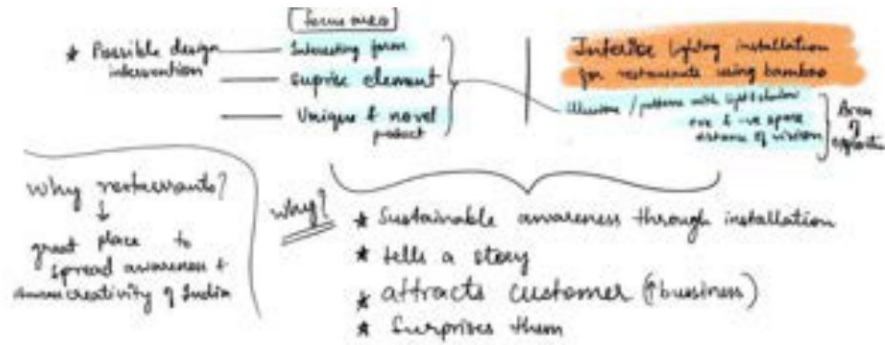 focus area
* Possible design intervention
Interesting form
suprise element
Unique & novel
product
Interior lighting installation
for restaurants using bamboo
Illusions / patterns with light & shadow
+ve & -ve space
distance of vision
Area
of
why restaurants?
↓
great place to
spread awareness +
creativity of India
why?
* Sustainable awareness through installation
* tells a story
* attracts customer (↑ bussiness)
* Surprises them